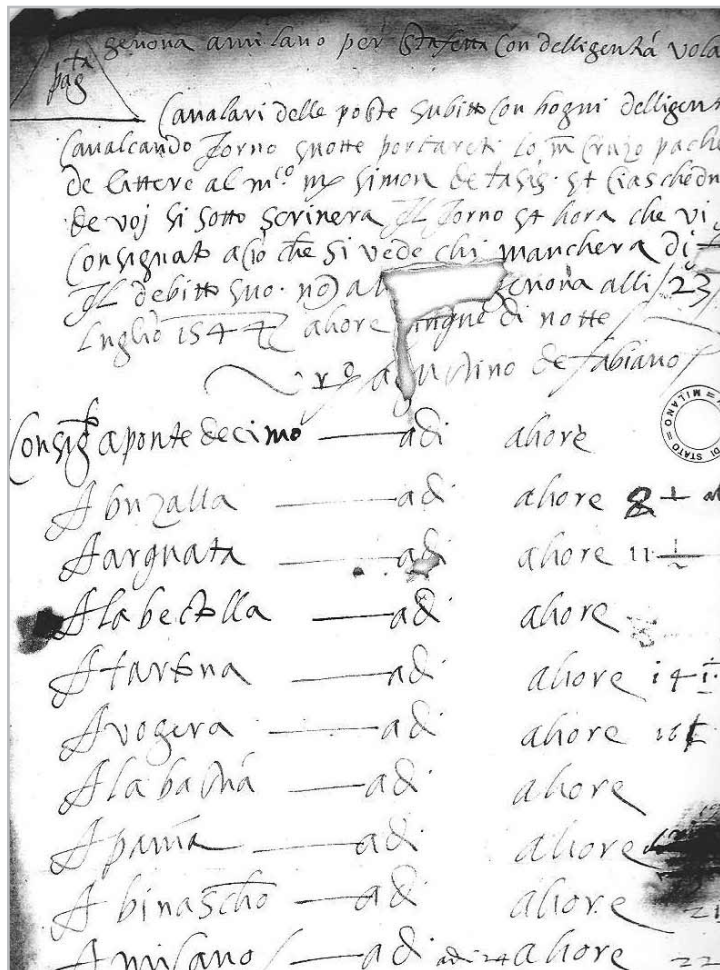 pag ta
genova a milano per Stafetta Con delligentia vola
Cavalari delle poste Subitto Con hogni delligent
Cavalcando Jorno &notte portareti lo
de littere al m.co Simon de tasis. et Ciaschedu
de voj Si Sotto Scrivera Il Jorno et hora che vi
Consignato acio che Si vede chi manchera di
Il debitto Suo. genova alli 23
Luglio 1544 ahore cinque di notte
de fabiano
Consig a ponte decimo adi ahore
A buzalla adi ahore 8
A arquata adi ahore 11
A la betolla adi ahore
A tortona adi ahore 14
A vogera adi ahore 16
A la bastia adi ahore
A pavia adi ahore
A binascho adi ahore 21
A milano adi adi 24 ahore 22
DI STATO = MILANO =